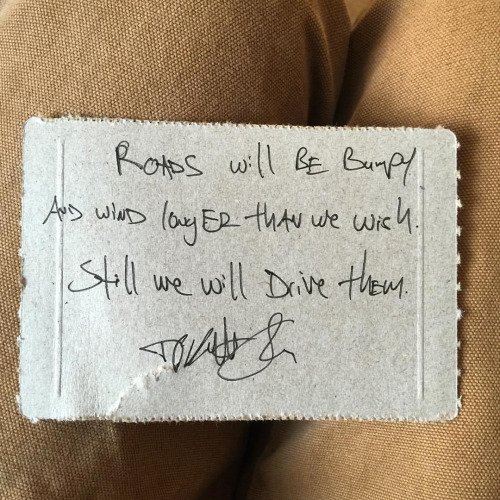 ROADS will BE Bumpy
AND WIND longER thAN we wish.
Still we will Drive them.